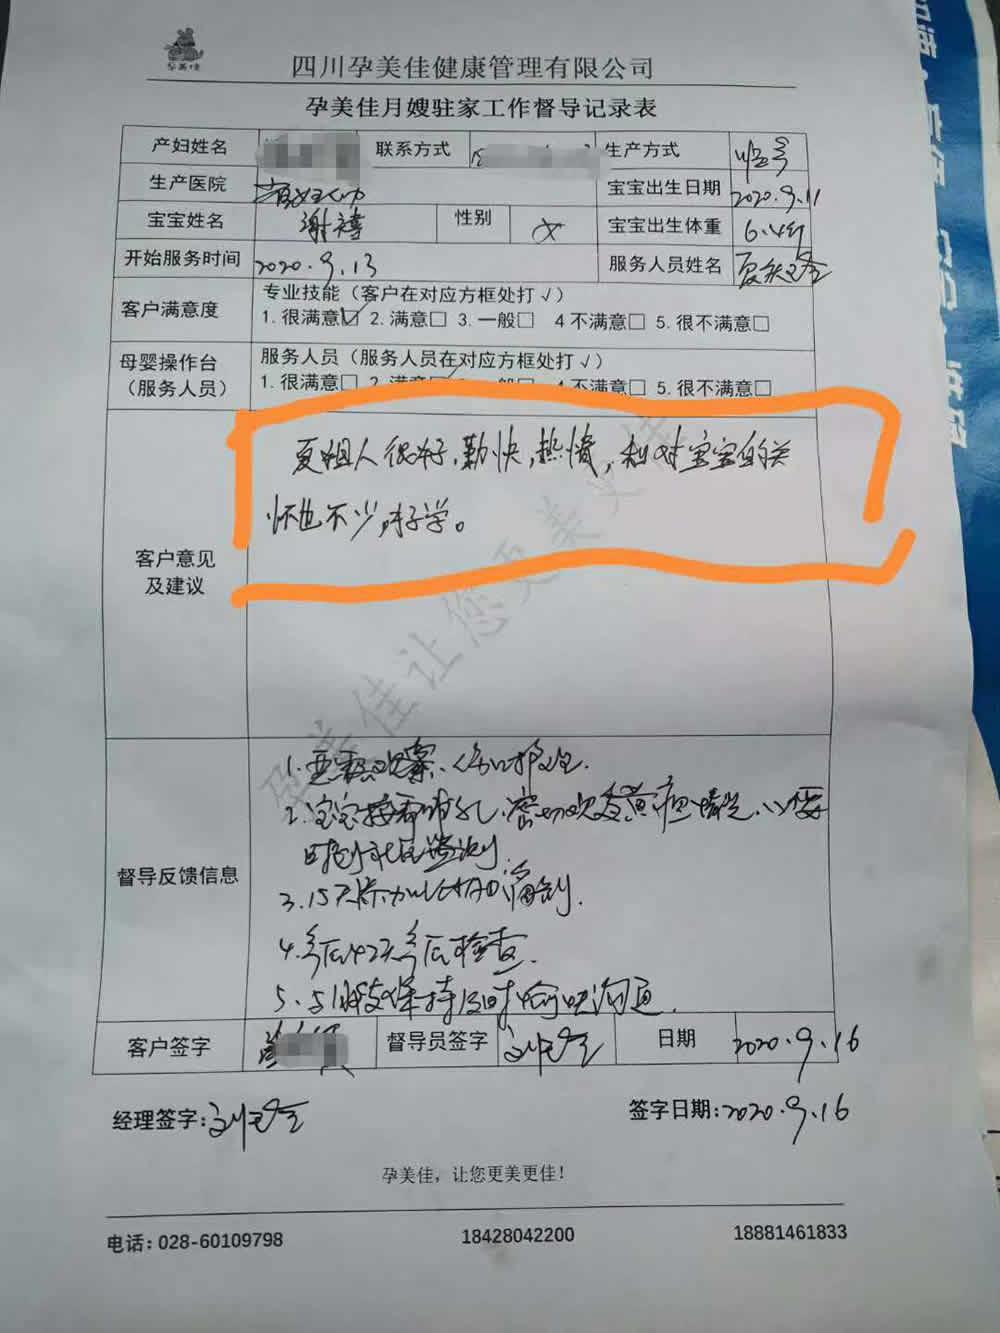 孕美佳
四川孕美佳健康管理有限公司
孕美佳月嫂驻家工作督导记录表
产妇姓名 联系方式 生产方式
生产医院 宝宝出生日期 2020.9.11
宝宝姓名 谢 性别 女 宝宝出生体重 6.4斤
开始服务时间 2020.9.13 服务人员姓名
客户满意度
专业技能（客户在对应方框处打√）
1.很满意☑ 2.满意□ 3.一般□ 4不满意□ 5.很不满意□
母婴操作台
（服务人员）
服务人员（服务人员在对应方框处打√）
1.很满意□ 2.满意 一般□ 4.不满意□ 5.很不满意□
客户意见
及建议
夏姐人很好,勤快,热情,和对宝宝的关
怀也不少,好学。
孕美佳让您更美更佳
督导反馈信息
1.
2.宝宝 黄疸
3.15天
4.产后42天产后检查.
5.与 保持及时愉快沟通.
客户签字 督导员签字 日期 2020.9.16
经理签字: 签字日期:2020.9.16
孕美佳，让您更美更佳！
电话:028-60109798 18428042200 18881461833